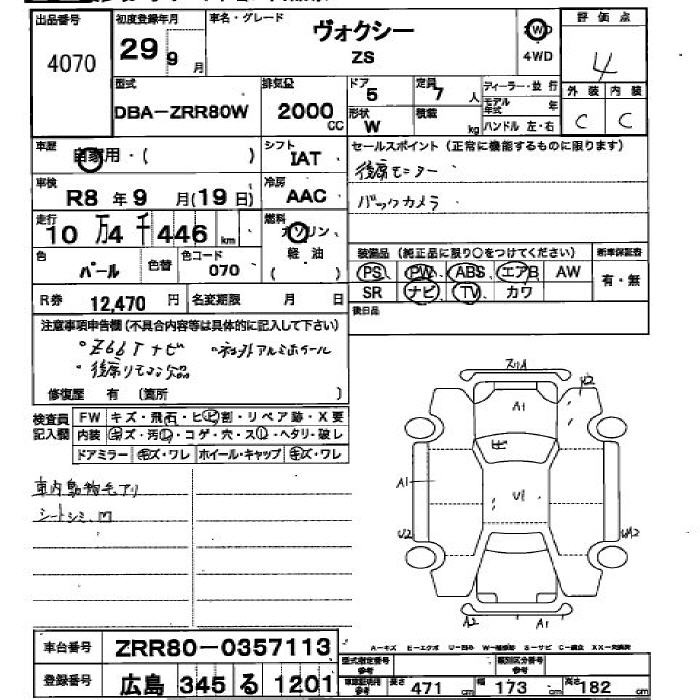 出品番号 初度登録年月 車名・グレード 評価点
4070 29 9月 ヴォクシー 2WD 4
ZS 4WD
型式 排気量 ドア 定員 ディーラー・並行 外装 内装
DBA-ZRR80W 2000CC 5 7人 モデル年式 年 C C
形状 積載
W kg ハンドル 左・右
車歴 自家用・( ) シフト IAT セールスポイント(正常に機能するものに限ります)
後席モニター
車検 R8年9月(19日) 冷房 AAC バックカメラ
走行 10万4千446km 燃料 ガソリン
軽油
( )
装備品(純正品に限り○をつけてください) 新車保証書
色 パール 色替 色コード 070 PS、PW、ABS、エアB AW 有・無
R券 12,470円 名変期限 月 日 SR ナビ、TV、カワ
後日品
注意事項申告欄(不具合内容等は具体的に記入して下さい)
・Z66Tナビ ・社外アルミホイール
・後席リモコン欠品
修復歴 有 (箇所 )
検査員記入欄 FW キズ・飛石・ヒビ割・リペア跡・X要
内装 キズ・汚レ・コゲ・穴・スレ・ヘタリ・破レ
ドアミラー キズ・ワレ ホイール・キャップ キズ・ワレ
車内動物毛アリ
シートシミ、凹
スリA
A1
U2
A1
U1
U2
UA2
A2 A1
A-キズ E-エクボ U-凹み W-補修跡 S-サビ C-腐食 XX-交換済
車台番号 ZRR80-0357113 型式指定番号 参考 類別区分番号 参考
登録番号 広島 345 る 1201 車車証明用 参考 長さ 471cm 幅 173cm 高さ 182cm